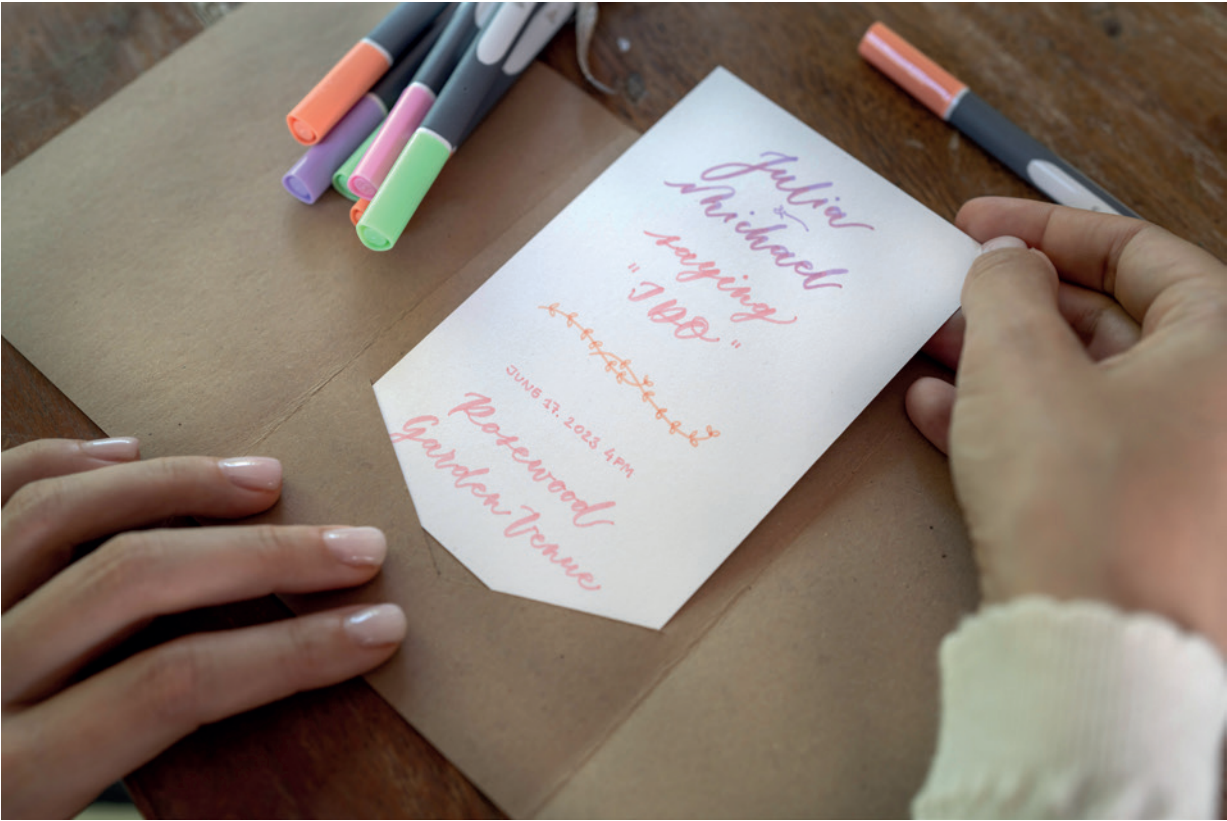 Julia
&
Michael
saying
"I DO"
JUNE 17, 2023 4PM
Rosewood
Garden Venue